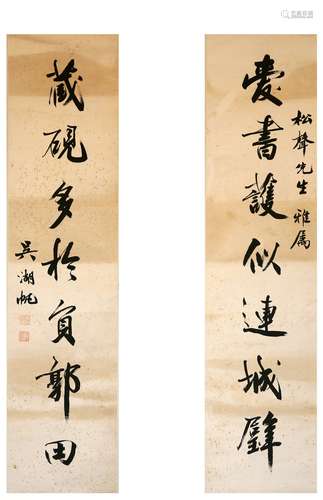 愛書護似連城璧
松聲先生雅屬
藏硯多於負郭田
吳湖帆